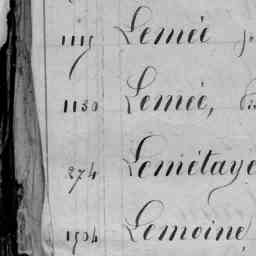 1115 Lemée
1130 Lemée,
274 Lemétaye
1504 Lemoine,